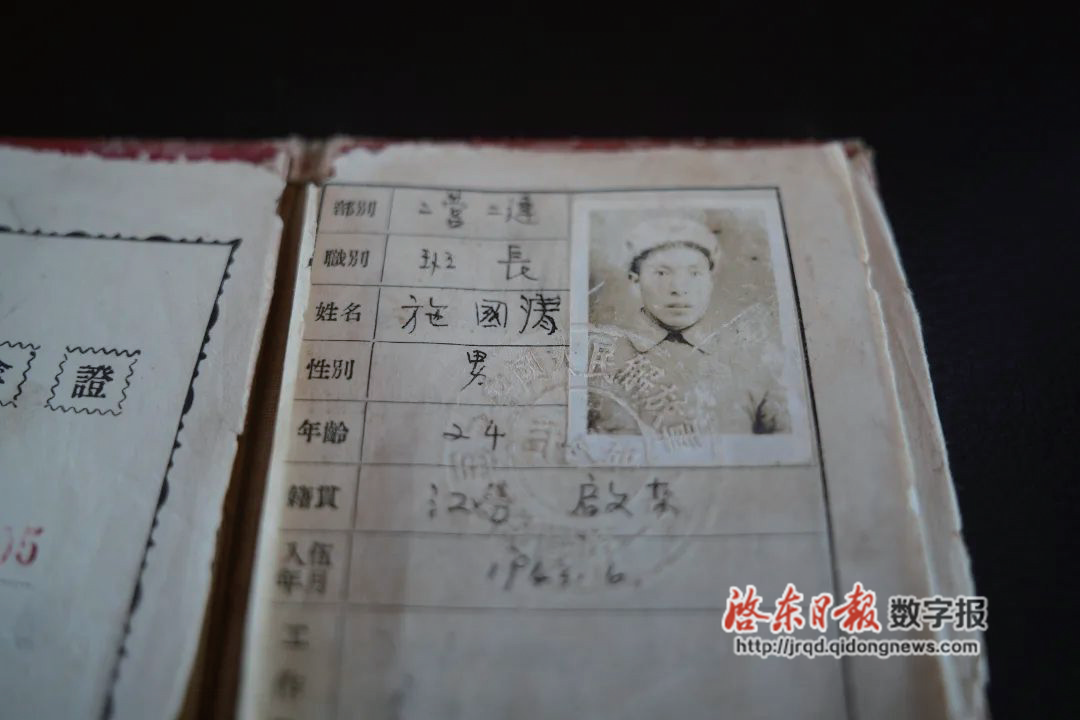 證
05
部別 二營二連
職別 班長
姓名 施國濤
性別 男
年齡 24
籍貫 江蘇 啟東
入伍
年月
工
作
國人民解放
启东日报 数字报
http://jrqd.qidongnews.com